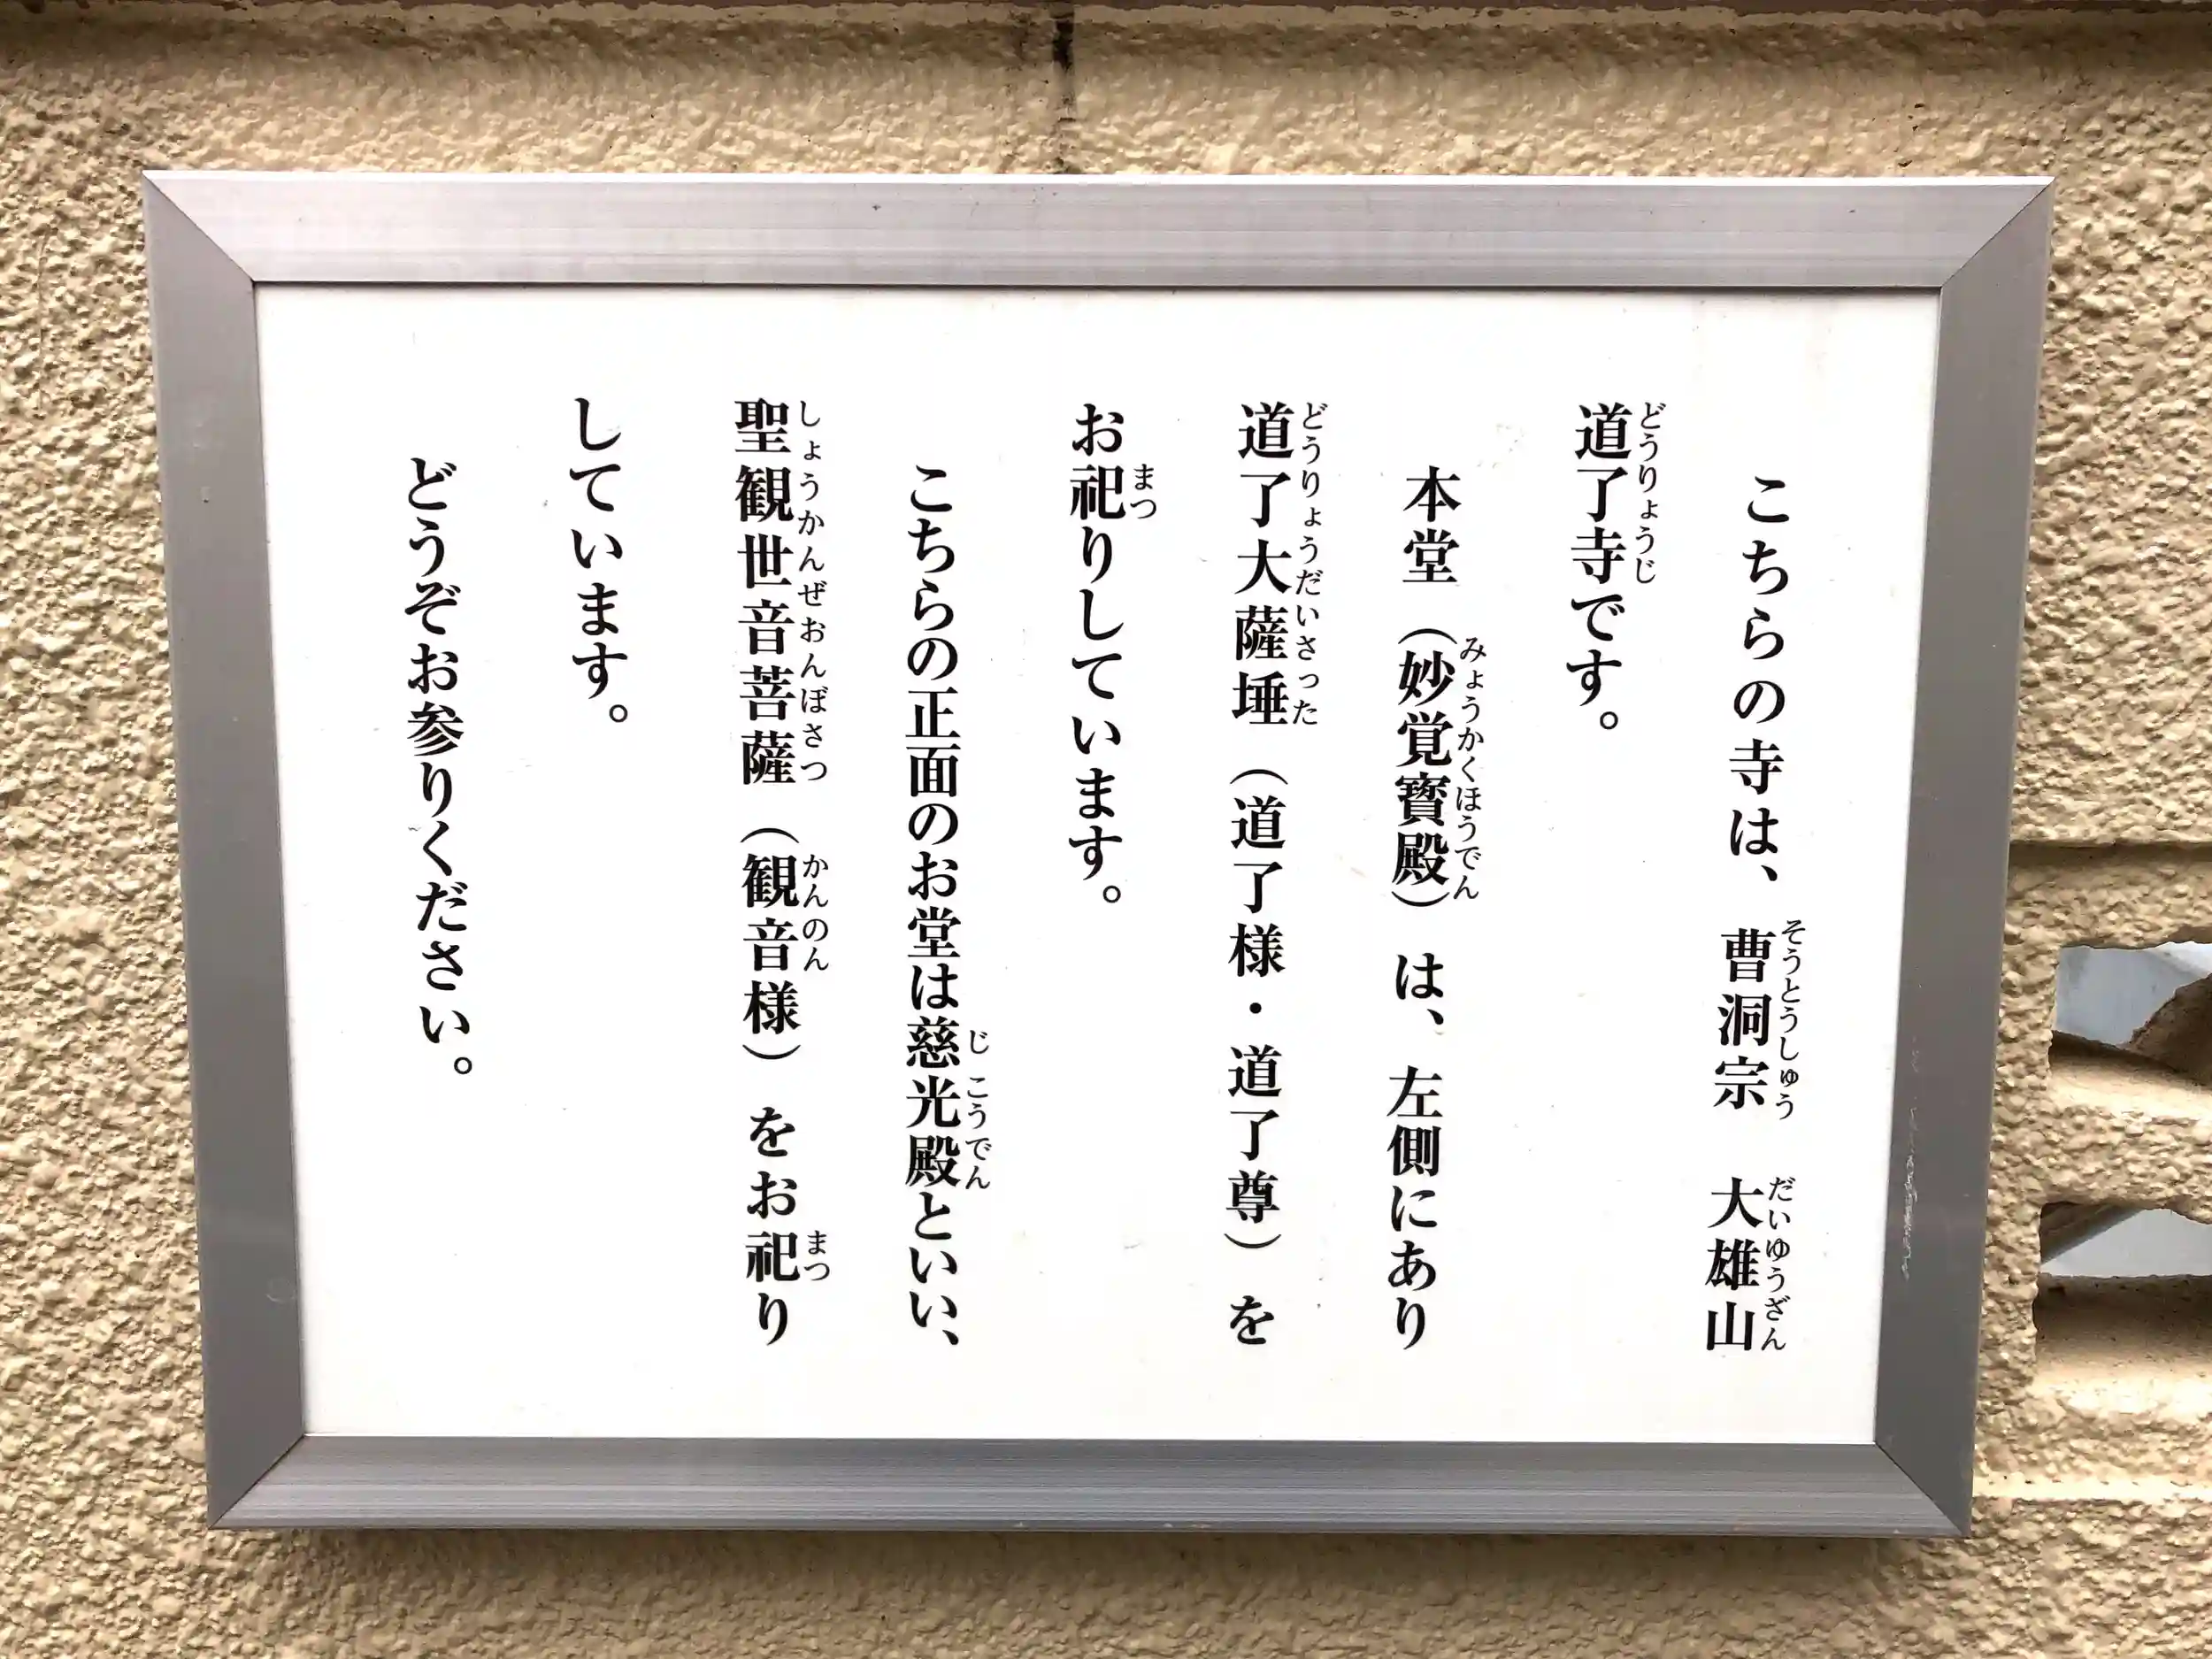 こちらの寺は、曹洞宗　大雄山
道了寺です。
本堂（妙覚寳殿）は、左側にあり
道了大薩埵（道了様・道了尊）を
お祀りしています。
こちらの正面のお堂は慈光殿といい、
聖観世音菩薩（観音様）をお祀り
しています。
どうぞお参りください。
そうとうしゅう　だいゆうざん
どうりょうじ
みょうかくほうでん
どうりょうだいさった
まつ
じこうでん
しょうかんぜおんぼさつ　かんのん　まつ